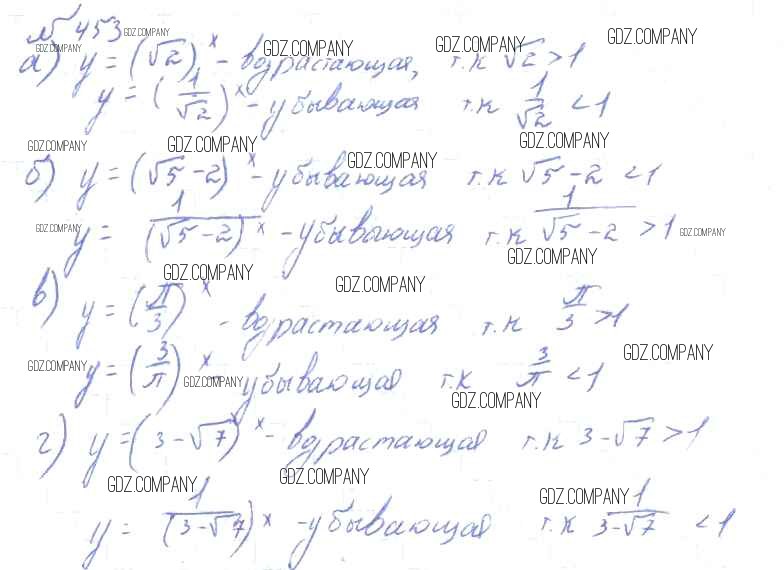 № 453 GDZ.COMPANY
GDZ.COMPANY GDZ.COMPANY GDZ.COMPANY GDZ.COMPANY
а) y = (√2)^x - возрастающая, т.к √2 > 1
y = (1/√2)^x - убывающая т.к 1/√2 < 1
GDZ.COMPANY GDZ.COMPANY GDZ.COMPANY GDZ.COMPANY
б) y = (√5 - 2)^x - убывающая т.к √5 - 2 < 1
GDZ.COMPANY y = 1/(√5 - 2)^x - убывающая т.к 1/√5 - 2 > 1 GDZ.COMPANY
GDZ.COMPANY GDZ.COMPANY GDZ.COMPANY
в) y = (π/3)^x - возрастающая т.к π/3 > 1
GDZ.COMPANY GDZ.COMPANY
y = (3/π)^x GDZ.COMPANY - убывающая т.к 3/π < 1
GDZ.COMPANY
г) y = (3 - √7)^x - возрастающая т.к 3 - √7 > 1
GDZ.COMPANY GDZ.COMPANY GDZ.COMPANY
y = 1/(3 - √7)^x - убывающая т.к 1/3 - √7 < 1